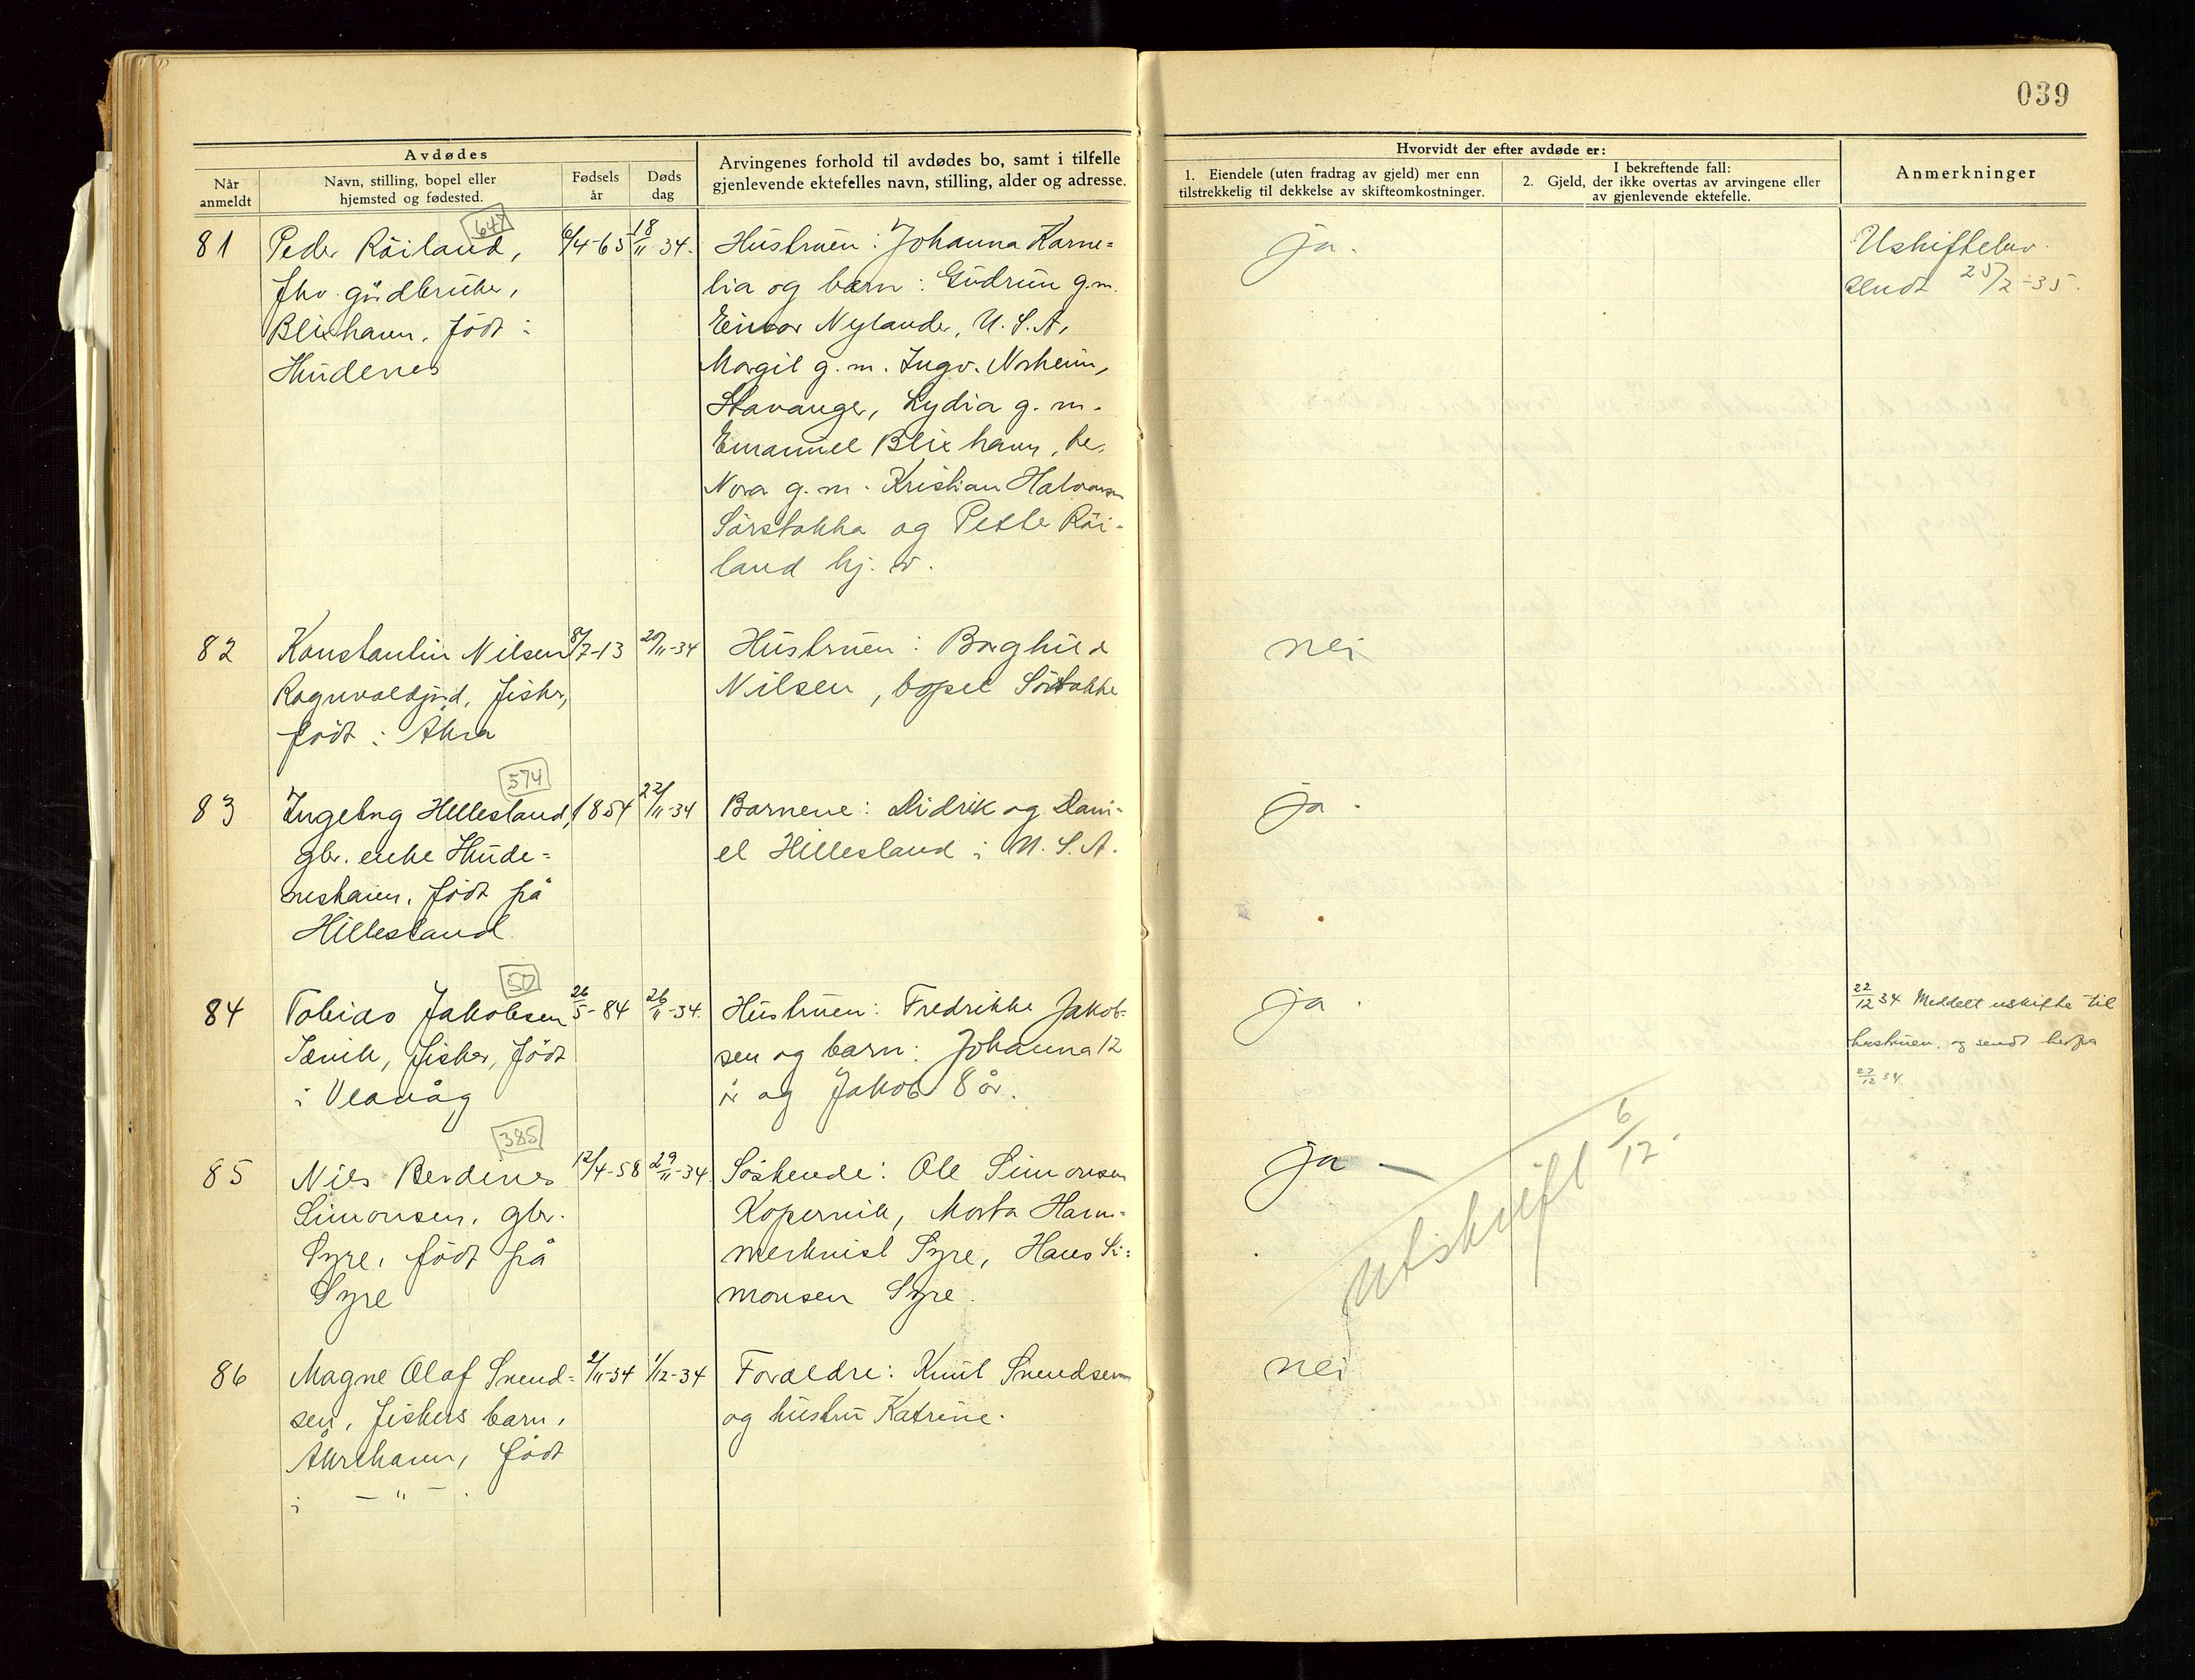 039
Avdødes
Når
anmeldt
Navn, stilling, bopel eller
hjemsted og fødested.
Fødsels
år
Døds
dag
Arvingenes forhold til avdødes bo, samt i tilfelle
gjenlevende ektefelles navn, stilling, alder og adresse.
Hvorvidt der efter avdøde er:
1. Eiendele (uten fradrag av gjeld) mer enn
tilstrekkelig til dekkelse av skifteomkostninger.
I bekreftende fall:
2. Gjeld, der ikke overtas av arvingene eller
av gjenlevende ektefelle.
Anmerkninger
647
81 Peder Röiland, 6/4-65 18/11-34. Hustruen: Johanna Karne=
fhv. gårdbruker,
Blixhavn, født i
Hudenes
lia og barn: Gudrun g.m.
Einar Nylander, U.S.A.,
Margit g. m. Ingv. Norheim,
Stavanger, Lydia g. m.
Emanuel Blixhavn, her,
Nora g. m. Kristian Halvorsen
Sörstokke og Petter Röi-
land hj. v.
ja.
Uskiftebev.
sendt 25/2-35.
82 Konstantin Nilsen 8/7-13 20/11-34 Hustruen: Borghild
Ragnvaldjord, fisker,
født i Åkra
Nilsen, bopel Sörstokke
nei
574
83 Ingebrg Hillesland, 1854 22/11-34 Barnene: Didrik og Dani-
gbr. enke Hude=
neshavn, født på
Hillesland
el Hillesland i U.S.A.
ja.
50
84 Tobias Jakobsen 26/5-84 26/11-34. Hustruen: Fredrikke Jakob-
Sævik, fisker, født
i Veavåg
sen og barn: Johanna 12
år og Jakob 8 år.
ja.
22/12 34 Meddelt uskifte til
hustruen, og sendt herfra
27/12 34
385
85 Nils Berdines 12/4-58 29/11-34. Söskende: Ole Simonsen
Simonsen, gbr.
Syre, født på
Syre
Kopervik, Marta Ham-
merkvist Syre, Hans Si-
monsen Syre.
ja -
utskrift 6/12.
86 Magne Olaf Svend- 2/11-34 1/12-34 Forældre: Knut Svendsen
sen, fiskers barn,
Åkrehavn, født
i — " — .
og hustru Katrine.
nei